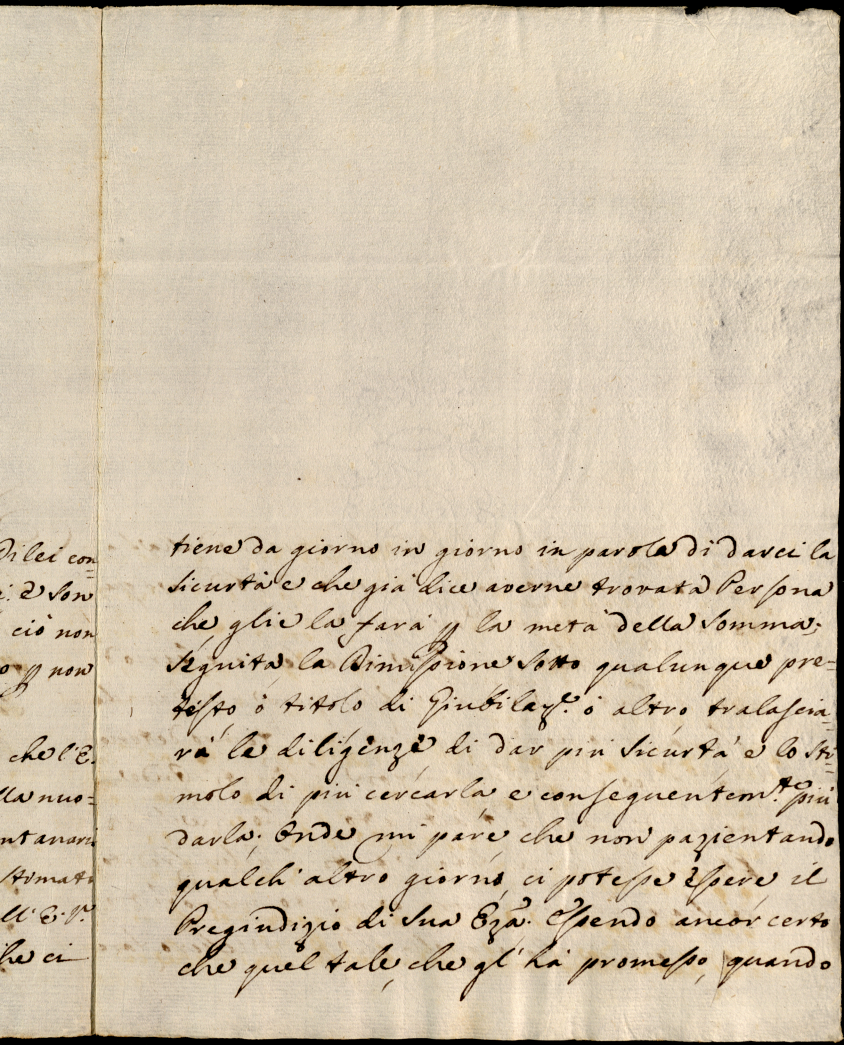 Di lei con=
è son
ciò non
non
che l'E.
lla nuo=
ntanari
stimati
ll' E. V.ª
he ci
tiene da giorno in giorno in parola di darci la
Sicurtà e che già dice averne trovata Persona
che glie la farà p la metà della Somma;
Seguita la Dimissione sotto qualunque pre=
testo ò titolo di Giubilaz.e ò altro tralascia=
rà le diligenze di dar più Sicurtà e lo sti=
molo di più cercarla e conseguentem.te più
darla; Onde mi pare che non pazientando
qualch' altro giorno, ci potesse essere il
Pregiudizio di Sua Eza. Essendo ancor certo
che quel tale, che gl' hà promesso, quando